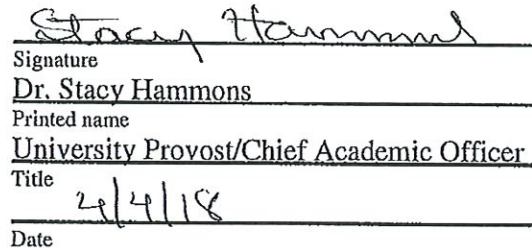 Stacy Hammons
Signature
Dr. Stacy Hammons
Printed name
University Provost/Chief Academic Officer
Title
4/4/18
Date